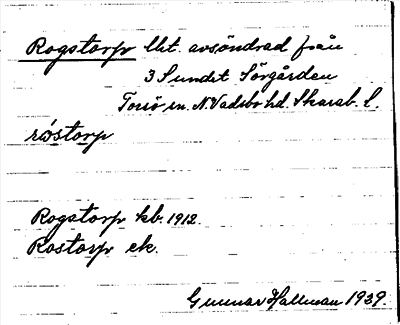 Rogstorp lht. avsöndrad från
3 Sundet Sörgården
Torsö sn. N. Vadsbo hd. Skarab. L.
røstorp
Rogstorp kb. 1912.
Rostorp ek.
Gunnar Hallman 1939.